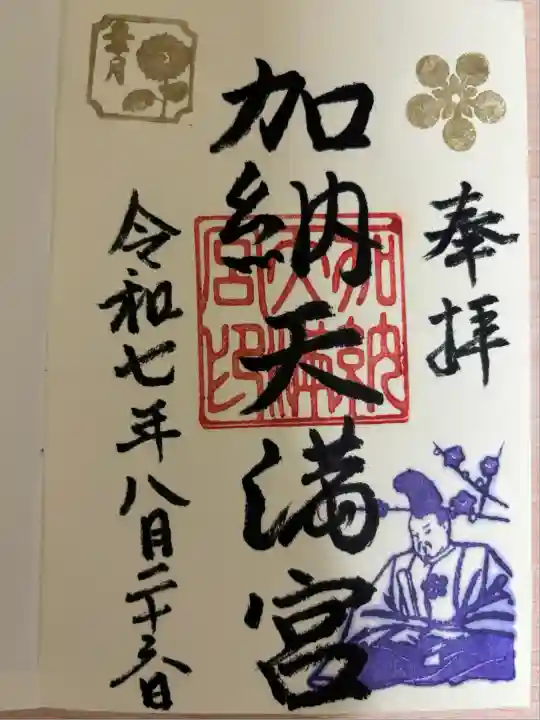 奉拝
加納天満宮
加納天満宮印
葉月
令和七年八月二十三日